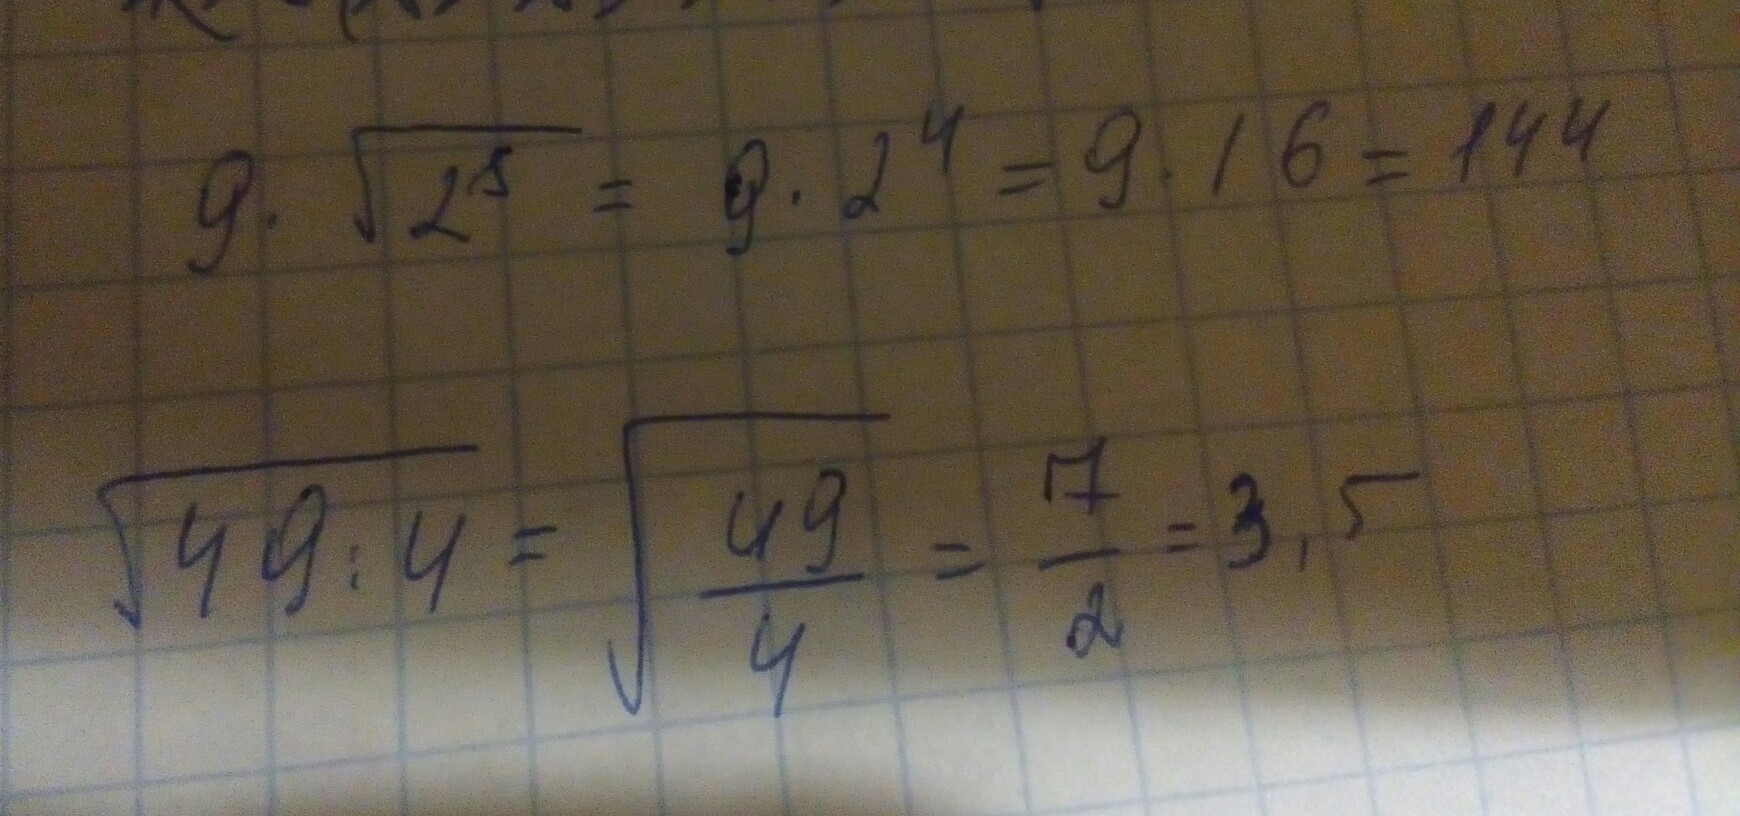 9 · √2⁸ = 9 · 2⁴ = 9 · 16 = 144
√49 : 4 = √49/4 = 7/2 = 3,5